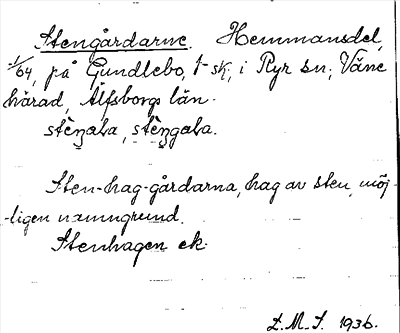 Stengårdarne. Hemmansdel,
1/64, på Gundlebo, f sk, i Ryr sn, Väne
härad, Älfsborgs län.
stèŋala, stèŋgala.
Sten-hag-gårdarna, hag av sten, möj-
ligen namngrund.
Stenhagen ek.
1936.